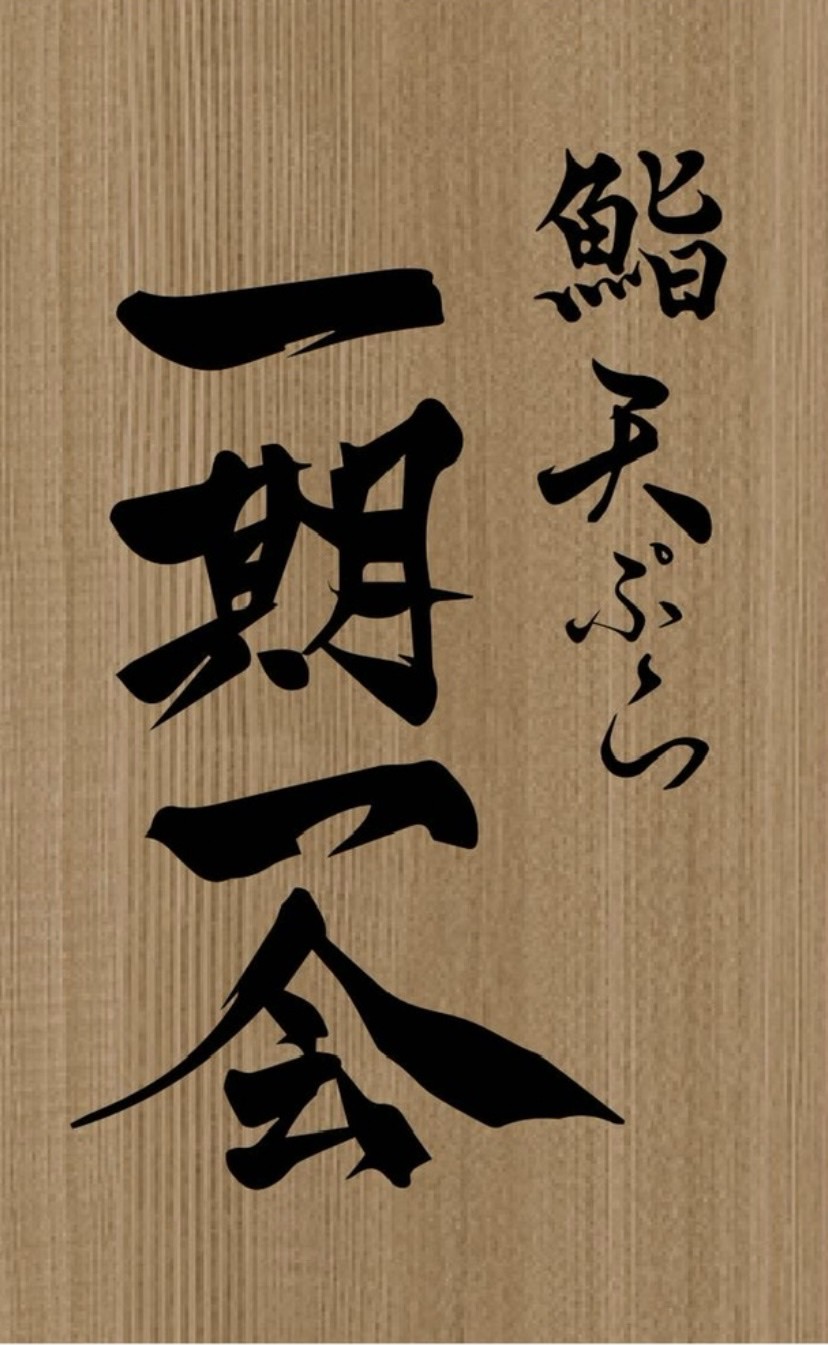 鮨 天ぷら
一期一会